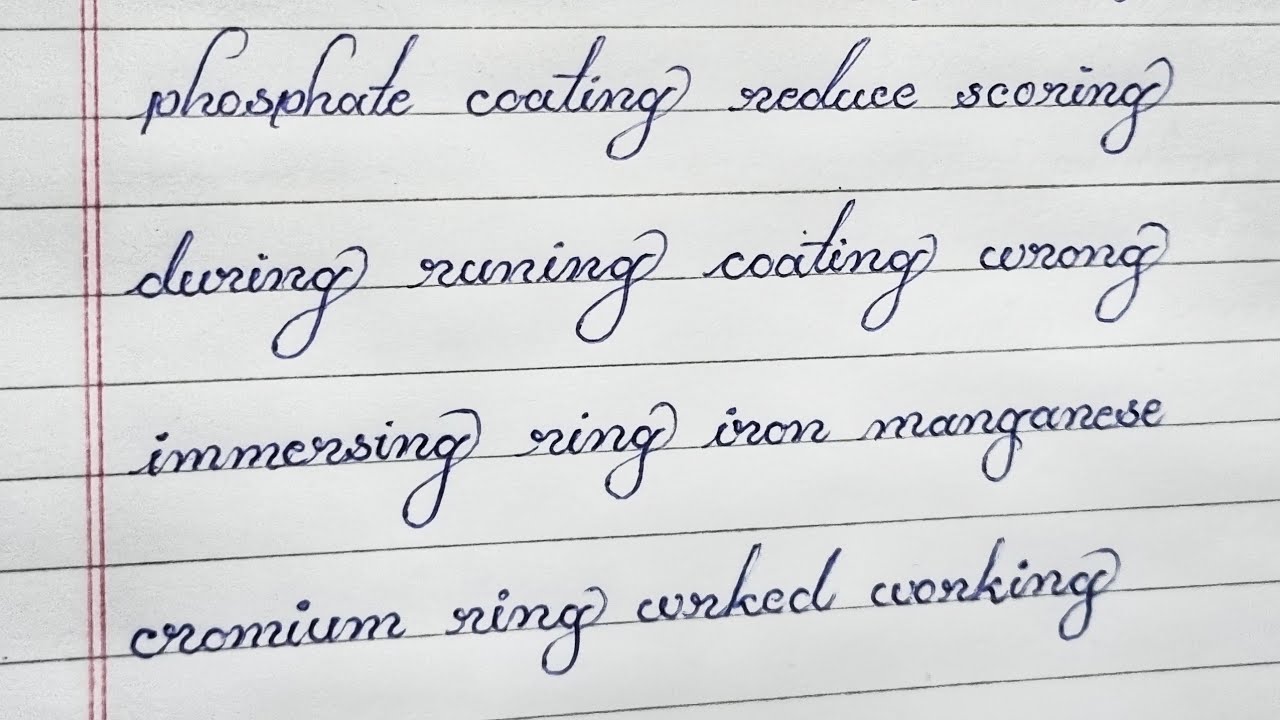 phosphate coating reduce scoring
during runing coating wrong
immersing ring iron manganese
cromium ring wrked working